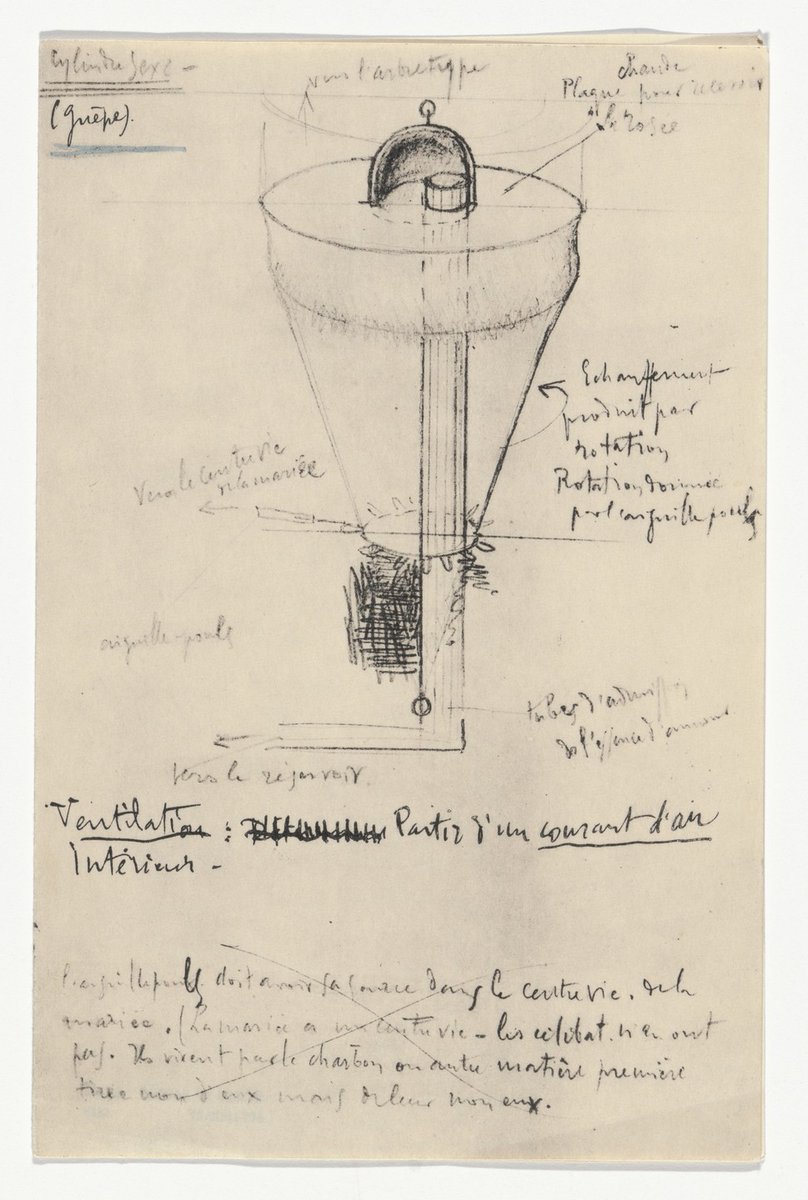 Cylindre sexe –
(guêpe).
vers l'arbre type
chaude
Plaque pour recevoir
la rosée
Echauffement
produit par
rotation
Rotation donnée
par l'aiguille pouls
Vers le centre vie
de la mariée
aiguille-pouls
tubes d'admission
de l'essence d'amour
vers le réservoir.
Ventilation : Partir d'un courant d'air
Intérieur –
l'aiguille pouls doit avoir sa source dans le centre vie. de la
mariée. (La mariée a un centre vie – les célibat. n'en ont
pas. Ils vivent par le charbon ou autre matière première
tirée non d'eux mais de leur non eux.